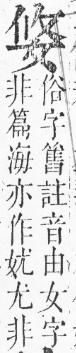 俗字舊註音由女字
非篇海亦作㚭尤非